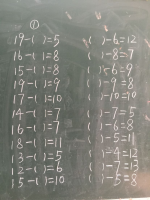 ①
19-( )=5 ( )-6=12
16-( )=8 ( )-8=7
15-( )=8 ( )-6=9
19-( )=9 ( )-9=8
17-( )=10 ( )-10=10
14-( )=7 ( )-7=5
16-( )=7 ( )-8=6
18-( )=11 ( )-5=11
13-( )=5 ( )-4=12
12-( )=6 ( )-7=13
15-( )=10 ( )-5=8